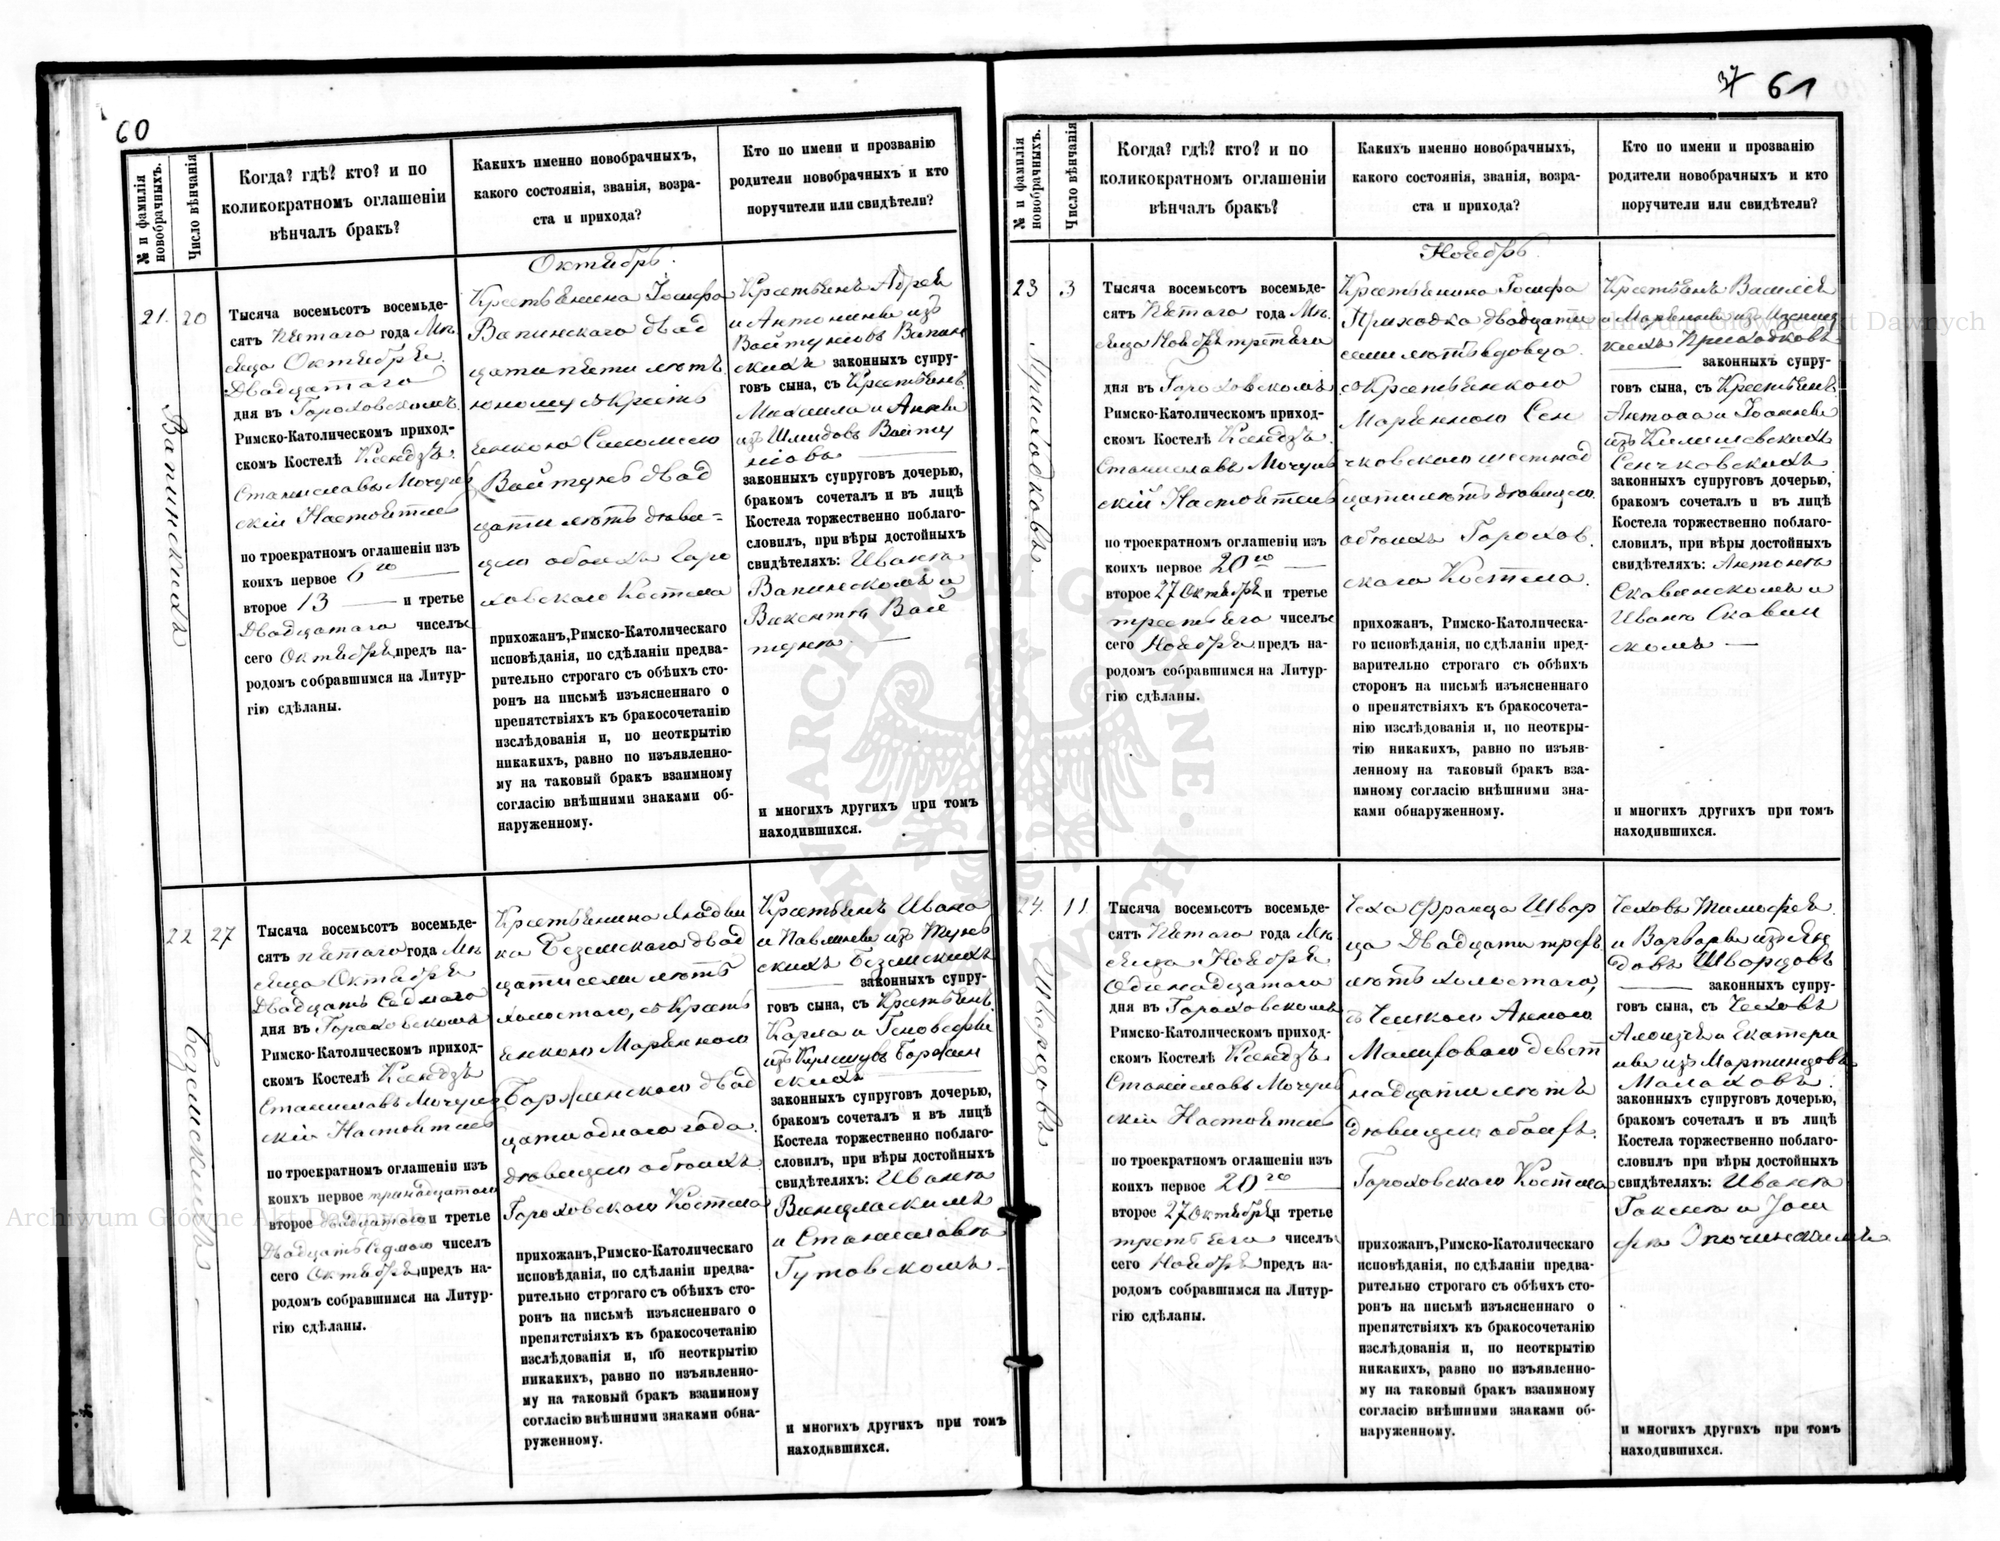 60
№ и фамилія новобрачныхъ.
Число вѣнчанія
Когда? гдѣ? кто? и по
коликократномъ оглашеніи
вѣнчалъ бракъ?
Какихъ именно новобрачныхъ,
какого состоянія, званія, возра-
ста и прихода?
Кто по имени и прозванію
родители новобрачныхъ и кто
поручители или свидѣтели?
Октябрь.
21.
20
Вапинскихъ
Тысяча восемьсотъ восемьде-
сятъ пятаго года Мѣ-
сяца Октября
Двадцатаго
дня въ Гороховскомъ
Римско-Католическомъ приход-
скомъ Костелѣ Ксендзъ
Станиславъ Мочуль
скій Настоятель
по троекратномъ оглашеніи изъ
коихъ первое 6го
второе 13 и третье
Двадцатаго чиселъ
сего Октября предъ на-
родомъ собравшимся на Литур-
гію сдѣланы.
Крестьянина Іосифа
Вапинскаго двад
цати пяти лѣтъ
юношу съ Кресть
янкою Саломеею
Войтунъ двад
цати лѣтъ дѣви=
цею обоихъ Горо
ховскаго Костела
прихожан, Римско-Католическаго
исповѣданія, по сдѣланіи предва-
рительно строгаго съ обѣихъ сто-
ронъ на письмѣ изъясненнаго о
препятствіяхъ къ бракосочетанію
изслѣдованія и, по неоткрытію
никакихъ, равно по изъявленно-
му на таковый бракъ взаимному
согласію внѣшними знаками об-
наруженному.
Крестьянъ Андрея
и Антонины изъ
Войтуновъ Вапин
скихъ законныхъ супру-
говъ сына, съ Крестьянъ
Михаила и Анны
изъ Шмидовъ Войту
новъ
законныхъ супруговъ дочерью,
бракомъ сочеталъ и въ лицѣ
Костела торжественно поблаго-
словилъ, при вѣры достойныхъ
свидѣтеляхъ: Иванѣ
Вапинскомъ и
Викентіи Вой
тунѣ
и многихъ другихъ при томъ
находившихся.
22
27
Беземскихъ
Тысяча восемьсотъ восемьде-
сятъ пятаго года Мѣ-
сяца Октября
Двадцать Седмаго
дня въ Гороховскомъ
Римско-Католическомъ приход-
скомъ Костелѣ Ксендзъ
Станиславъ Мочуль
скій Настоятель
по троекратномъ оглашеніи изъ
коихъ первое тринадцатаго
второе двадцатаго и третье
Двадцать Седмаго чиселъ
сего Октября предъ на-
родомъ собравшимся на Литур-
гію сдѣланы.
Крестьянина Людви
ка Беземскаго двад
цати семи лѣтъ
холостаго, съ Кресть
янкою Маріанною
двад
цати одного года
дѣвицею обоихъ
Гороховскаго Костела
прихожан, Римско-Католическаго
исповѣданія, по сдѣланіи предва-
рительно строгаго съ обѣихъ сто-
ронъ на письмѣ изъясненнаго о
препятствіяхъ къ бракосочетанію
изслѣдованія и, по неоткрытію
никакихъ, равно по изъявленно-
му на таковый бракъ взаимному
согласію внѣшними знаками обна-
руженному.
Крестьянъ Ивана
и Павлины изъ
скихъ Беземскихъ
законныхъ супру-
говъ сына, съ Крестьянъ
Карла и Геновефы
изъ
скихъ
законныхъ супруговъ дочерью,
бракомъ сочеталъ и въ лицѣ
Костела торжественно поблаго-
словилъ, при вѣры достойныхъ
свидѣтеляхъ: Иванѣ
и Станиславѣ
Гутовскомъ
и многихъ другихъ при томъ
находившихся.
37 61
№ и фамилія новобрачныхъ.
Число вѣнчанія
Когда? гдѣ? кто? и по
коликократномъ оглашеніи
вѣнчалъ бракъ?
Какихъ именно новобрачныхъ,
какого состоянія, званія, возра-
ста и прихода?
Кто по имени и прозванію
родители новобрачныхъ и кто
поручители или свидѣтели?
Ноябрь.
23
3
Приходковъ.
Тысяча восемьсотъ восемьде-
сятъ пятаго года Мѣ-
сяца Ноября третьяго
дня въ Гороховскомъ
Римско-Католическомъ приход-
скомъ Костелѣ Ксендзъ
Станиславъ Мочуль
скій Настоятель
по троекратномъ оглашеніи изъ
коихъ первое 20го
второе 27 Октября и третье
третьяго чиселъ
сего Ноября предъ на-
родомъ собравшимся на Литур-
гію сдѣланы.
Крестьянина Іосифа
Приходка двадцати
семи лѣтъ вдовца
съ Крестьянкою
Маріанною Сен
чковскою шестнад
цати лѣтъ дѣвицею
обоихъ Горохов
скаго Костела.
прихожан, Римско-Католическа-
го исповѣданія, по сдѣланіи пред-
варительно строгаго съ обѣихъ
сторонъ на письмѣ изъясненнаго
о препятствіяхъ къ бракосочета-
нію изслѣдованія и, по неоткры-
тію никакихъ, равно по изъяв-
ленному на таковый бракъ вза-
имному согласію внѣшними зна-
ками обнаруженному.
Крестьянъ Василія
и Маріанны изъ
Приходковъ
законныхъ супру-
говъ сына, съ Крестьянъ
Антона и Іоанны
изъ
Сенчковскихъ
законныхъ супруговъ дочерью,
бракомъ сочеталъ и въ лицѣ
Костела торжественно поблаго-
словилъ, при вѣры достойныхъ
свидѣтеляхъ: Антонѣ
Скавинскомъ и
Иванѣ Скавин
скомъ
и многихъ другихъ при томъ
находившихся.
24.
11.
Шворцовъ
Тысяча восемьсотъ восемьде-
сятъ пятаго года Мѣ-
сяца Ноября
Одинадцатаго
дня въ Гороховскомъ
Римско-Католическомъ приход-
скомъ Костелѣ Ксендзъ
Станиславъ Мочуль
скій Настоятель
по троекратномъ оглашеніи изъ
коихъ первое 20го
второе 27 Октября и третье
третьяго чиселъ
сего Ноября предъ на-
родомъ собравшимся на Литур-
гію сдѣланы.
Чеха Франца Швор
ца Двадцати трехъ
лѣтъ холостаго,
съ Чешкою Анною
Малаховою девят
надцати лѣтъ
дѣвицею обоихъ
Гороховскаго Костела
прихожан, Римско-Католическаго
исповѣданія, по сдѣланіи предва-
рительно строгаго съ обѣихъ сто-
ронъ на письмѣ изъясненнаго о
препятствіяхъ къ бракосочетанію
изслѣдованія и, по неоткрытію
никакихъ, равно по изъявленно-
му на таковый бракъ взаимному
согласію внѣшними знаками об-
наруженному.
Чеховъ Тимофея
и Варвары изъ
Шворцовъ
законныхъ супру-
говъ сына, съ Чеховъ
Алоизія и Екатери
ны изъ Мартинцовъ
Малаховъ.
законныхъ супруговъ дочерью,
бракомъ сочеталъ и въ лицѣ
Костела торжественно поблаго-
словилъ, при вѣры достойныхъ
свидѣтеляхъ: Иванѣ
и Іоси
фѣ Опочинскимъ
и многихъ другихъ при томъ
находившихся.
Archiwum Główne Akt Dawnych
Archiwum Główne Akt Dawnych
ARCHIWUM GŁÓWNE AKT DAWNYCH